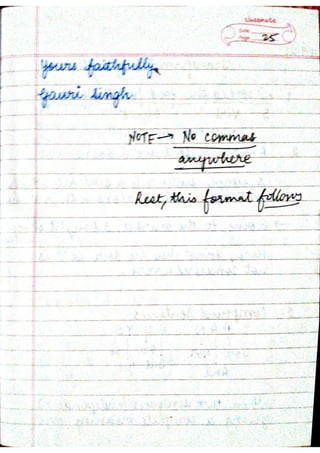 classmate
Date
Page 25
Yours faithfully
Gauri Singh
NOTE → No commas
anywhere
Rest, this format follows